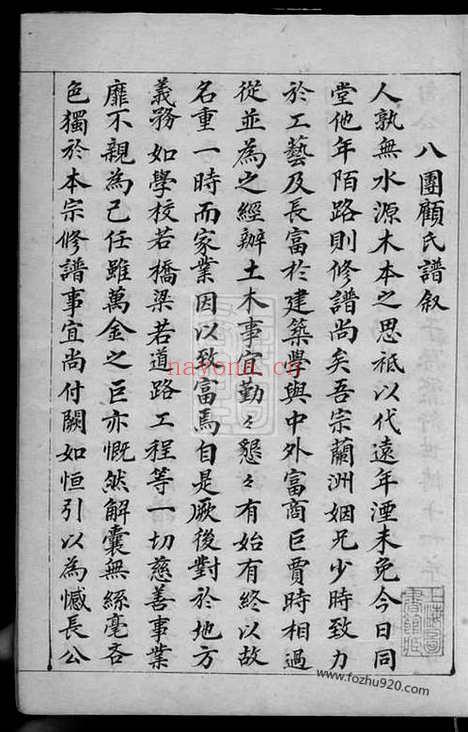 八團顧氏譜叙
人孰無水源木本之思祗以代遠年湮未免今日同
堂他年陌路則修譜尚矣吾宗蘭洲姻兄少時致力
於工藝及長富於建築學與中外富商巨賈時相過
從並為之經辦土木事宜勤々懇々有始有終以故
名重一時而家業因以致富焉自是厥後對於地方
義務如學校若橋梁若道路工程等一切慈善事業
靡不親為己任雖萬金之巨亦慨然解囊無絲毫吝
色獨於本宗修譜事宜尚付闕如恒引以為憾長公
nayona.cn
www.fozhu920.com